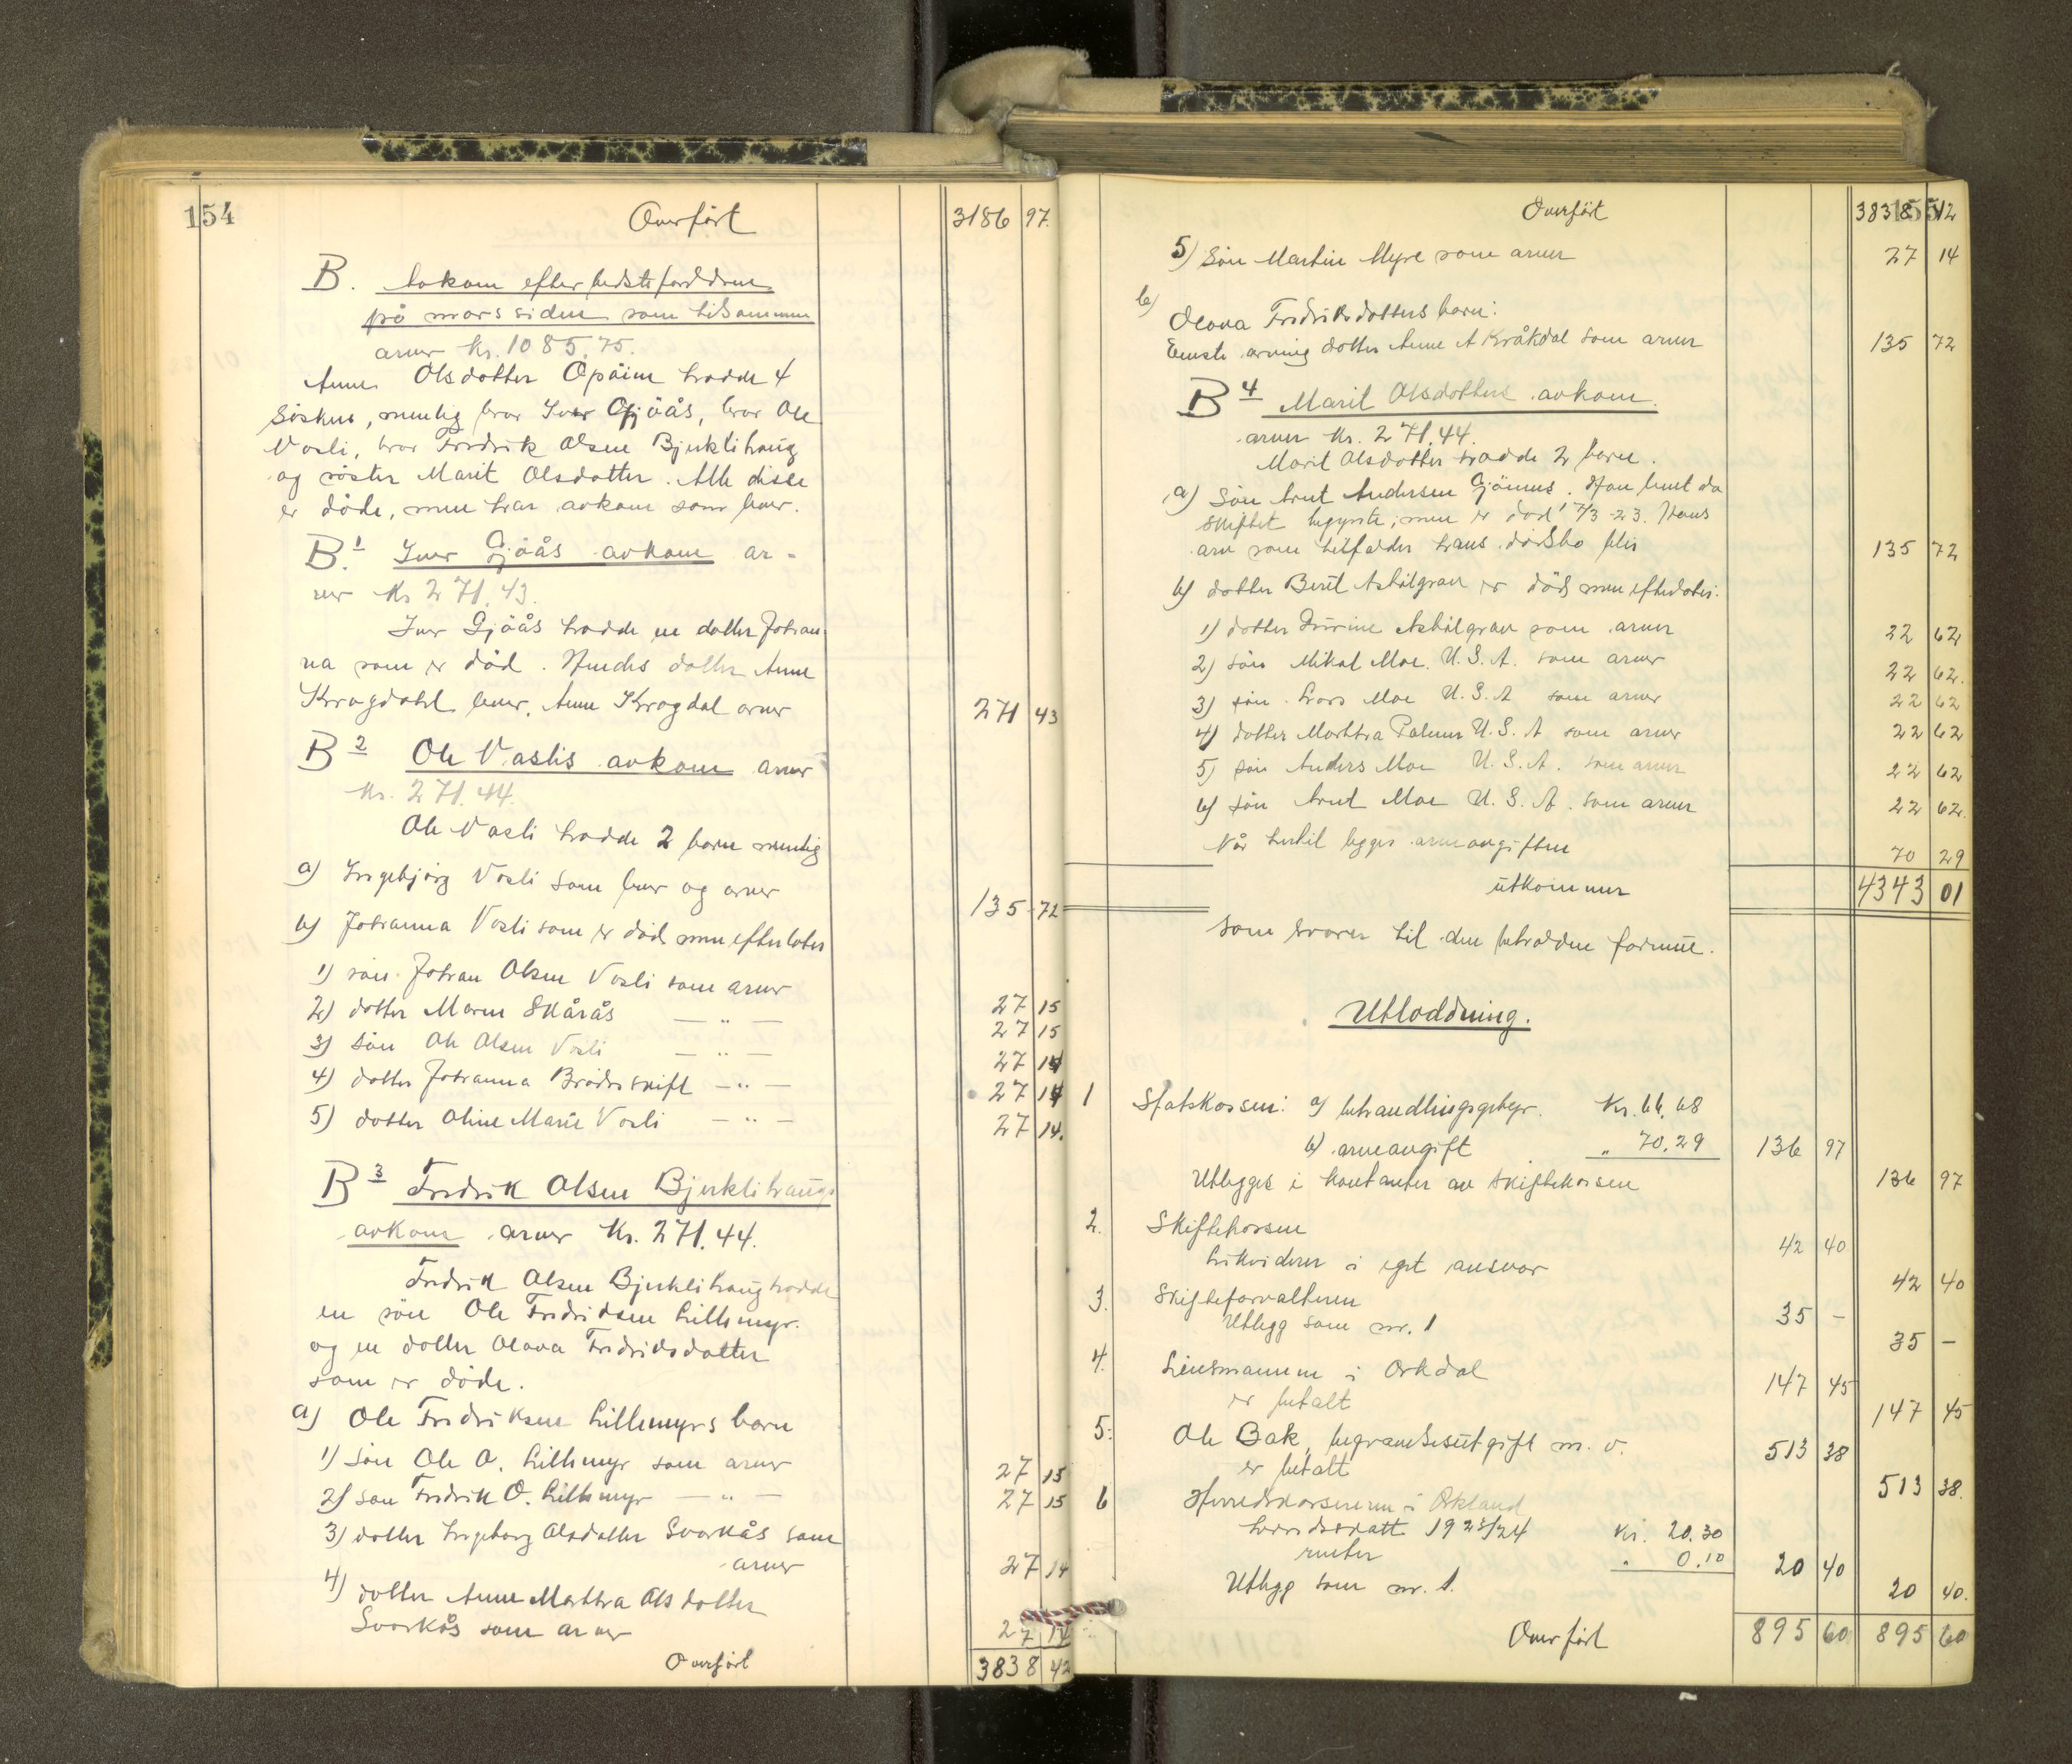 154
Overført 3186 97.
B. Avkom efter besteforeldrene
på mors siden som tilsammen
arver kr. 1085.75.
Anne Olsdotter Opåim hadde 4
søsken, nemlig bror Iver Gjøås, bror Ole
Vasli, bror Fredrik Olsen Bjerklihaug
og søster Marit Olsdotter. Alle disse
er døde, men har avkom som lever.
B.1 Iver Gjøås avkom ar-
ver kr 271.43.
Iver Gjøås hadde en datter Johan-
na som er død. Hendes datter Anne
Krogdahl lever. Anne Krogdal arver 271 43
B 2 Ole Vaslis avkom arver
kr. 271.44.
Ole Vasli hadde 2 barn nemlig
a) Ingebjørg Vasli som lever og arver 135 72
b) Johanna Vasli som er død men efterlater
1) søn Johan Olsen Vasli som arver 27 15
2) dotter Maren Skårås — „ — 27 15
3) Søn Ole Olsen Vasli — „ — 27 14
4) dotter Johanna Brødreskift — „ — 27 14
5) dotter Oline Marie Vasli — „ — 27 14.
B 3 Fredrik Olsen Bjerklihaugs
avkom arver kr. 271.44.
Fredrik Olsen Bjerklihaug hadde
en søn Ole Fredriksen Lillemyr.
og en dotter Olava Fredriksdotter
som er døde.
a) Ole Fredriksen Lillemyrs barn
1) Søn Ole O. Lillemyr som arver 27 15
2) søn Fredrik O. Lillemyr — „ — 27 15
3) dotter Ingeborg Olsdotter Svorkås som
arver 27 14
4) dotter Anne Marthra Olsdotter
Svorkås som arver 27 14
Overført 3838 42
155
Overført 3838 42
5) Søn Martin Myre som arver 27 14
b) Olava Fredriksdotters barn:
Eneste arving dotter Anne A Kråkdal som arver 135 72
B 4 Marit Olsdotters avkom.
arver kr. 271.44.
Marit Olsdotter hadde 2 barn.
a) Søn Arnt Andersen Gjønnes. Han levet da
skiftet begynte, men er død 17/3-23. Hans
arv som tilfalder hans dødsbo blir 135 72
b) dotter Berit Asbølgrav er død men efterlater:
1) dotter Asbølgrav som arver 22 62
2) søn Mikal Moe. U.S.A. som arver 22 62.
3) søn Lars Moe U.S.A som arver 22 62
4) dotter Marthra Palmer U.S.A som arver 22 62
5) søn Anders Moe U.S.A. som arver 22 62
6) søn Arnt Moe U.S.A. som arver 22 62.
Når hertil legges arveavgiften 70 29
utkommer 4343 01
som svarer til den beholdne formue.
Utloddning.
1 Statskassen: a) behandlingsgebyr. Kr. 66,68
b) arveavgift „ 70,29 136 97
Utlegges i kontanter av skiftekassen 136 97
2. Skiftekassen 42 40
Likviderer i eget ansvar 42 40
3. Skifteforvalteren 35 -
Utlegg som nr. 1 35 -
4. Lensmannen i Orkdal 147 45
er betalt 147 45
5. Ole Bak, begravelsesutgift m. v. 513 38
er betalt 513 38.
6 Herredskassereren i Orkland
herredsskatt 1923/24 Kr. 20.30
renter „ 0.10 20 40
Utlegg som nr. 1. 20 40.
Overført 895 60 895 60